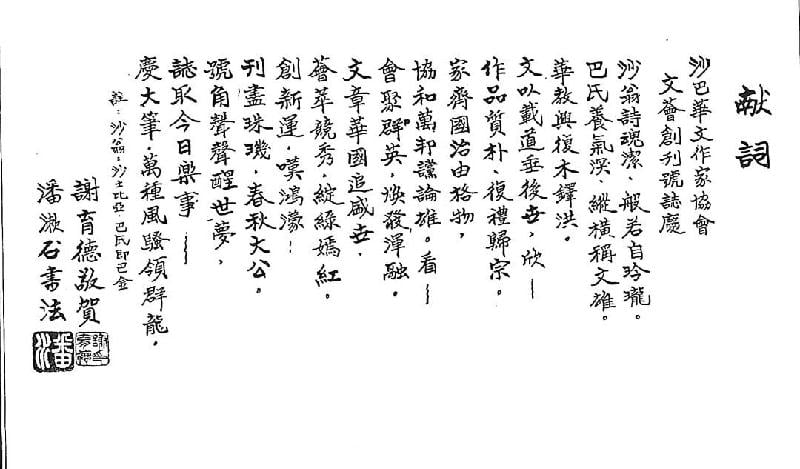 献詞
沙巴華文作家協會
文薈創刊號誌慶
沙翁詩魂潔、般若自玲瓏。
巴氏養氣深、縱橫稱文雄。
華教興復木鐸洪。
文以載道垂後世,欣—
作品質朴、復禮歸宗。
家齊國治由格物,
協和萬邦讜論雄。看—
會聚群英,煥發渾融。
文章華國追盛世。
薈萃競秀,綻綠嫣紅。
創新運,嘆鴻濛!
刊盡珠璣,春秋大公。
號角聲聲醒世夢,
誌取今日樂事—
慶大筆,萬種風騷領群龍,
註:沙翁:沙士比亞 巴氏即巴金
謝育德敬賀
潘漱石書法
潘